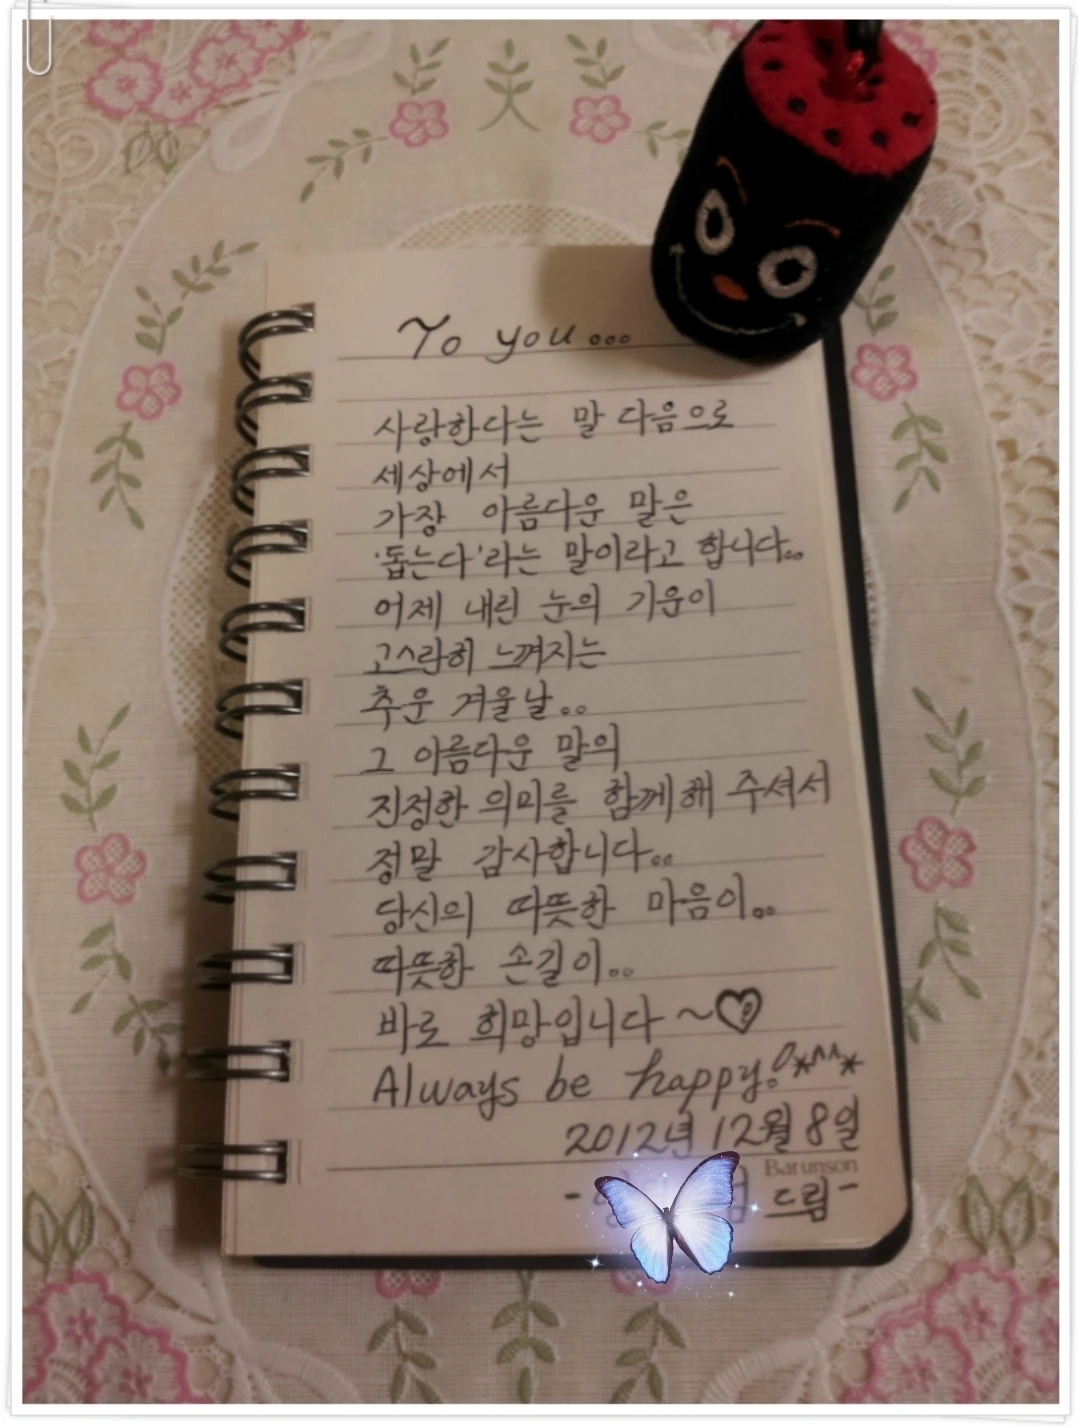 To you...
사랑한다는 말 다음으로
세상에서
가장 아름다운 말은
'돕는다'라는 말이라고 합니다..
어제 내린 눈의 기운이
고스란히 느껴지는
추운 겨울날..
그 아름다운 말의
진정한 의미를 함께해 주셔서
정말 감사합니다..
당신의 따뜻한 마음이..
따뜻한 손길이..
바로 희망입니다~♡
Always be happy!*^^*
2012년 12월 8일
Barunson
- 드림-